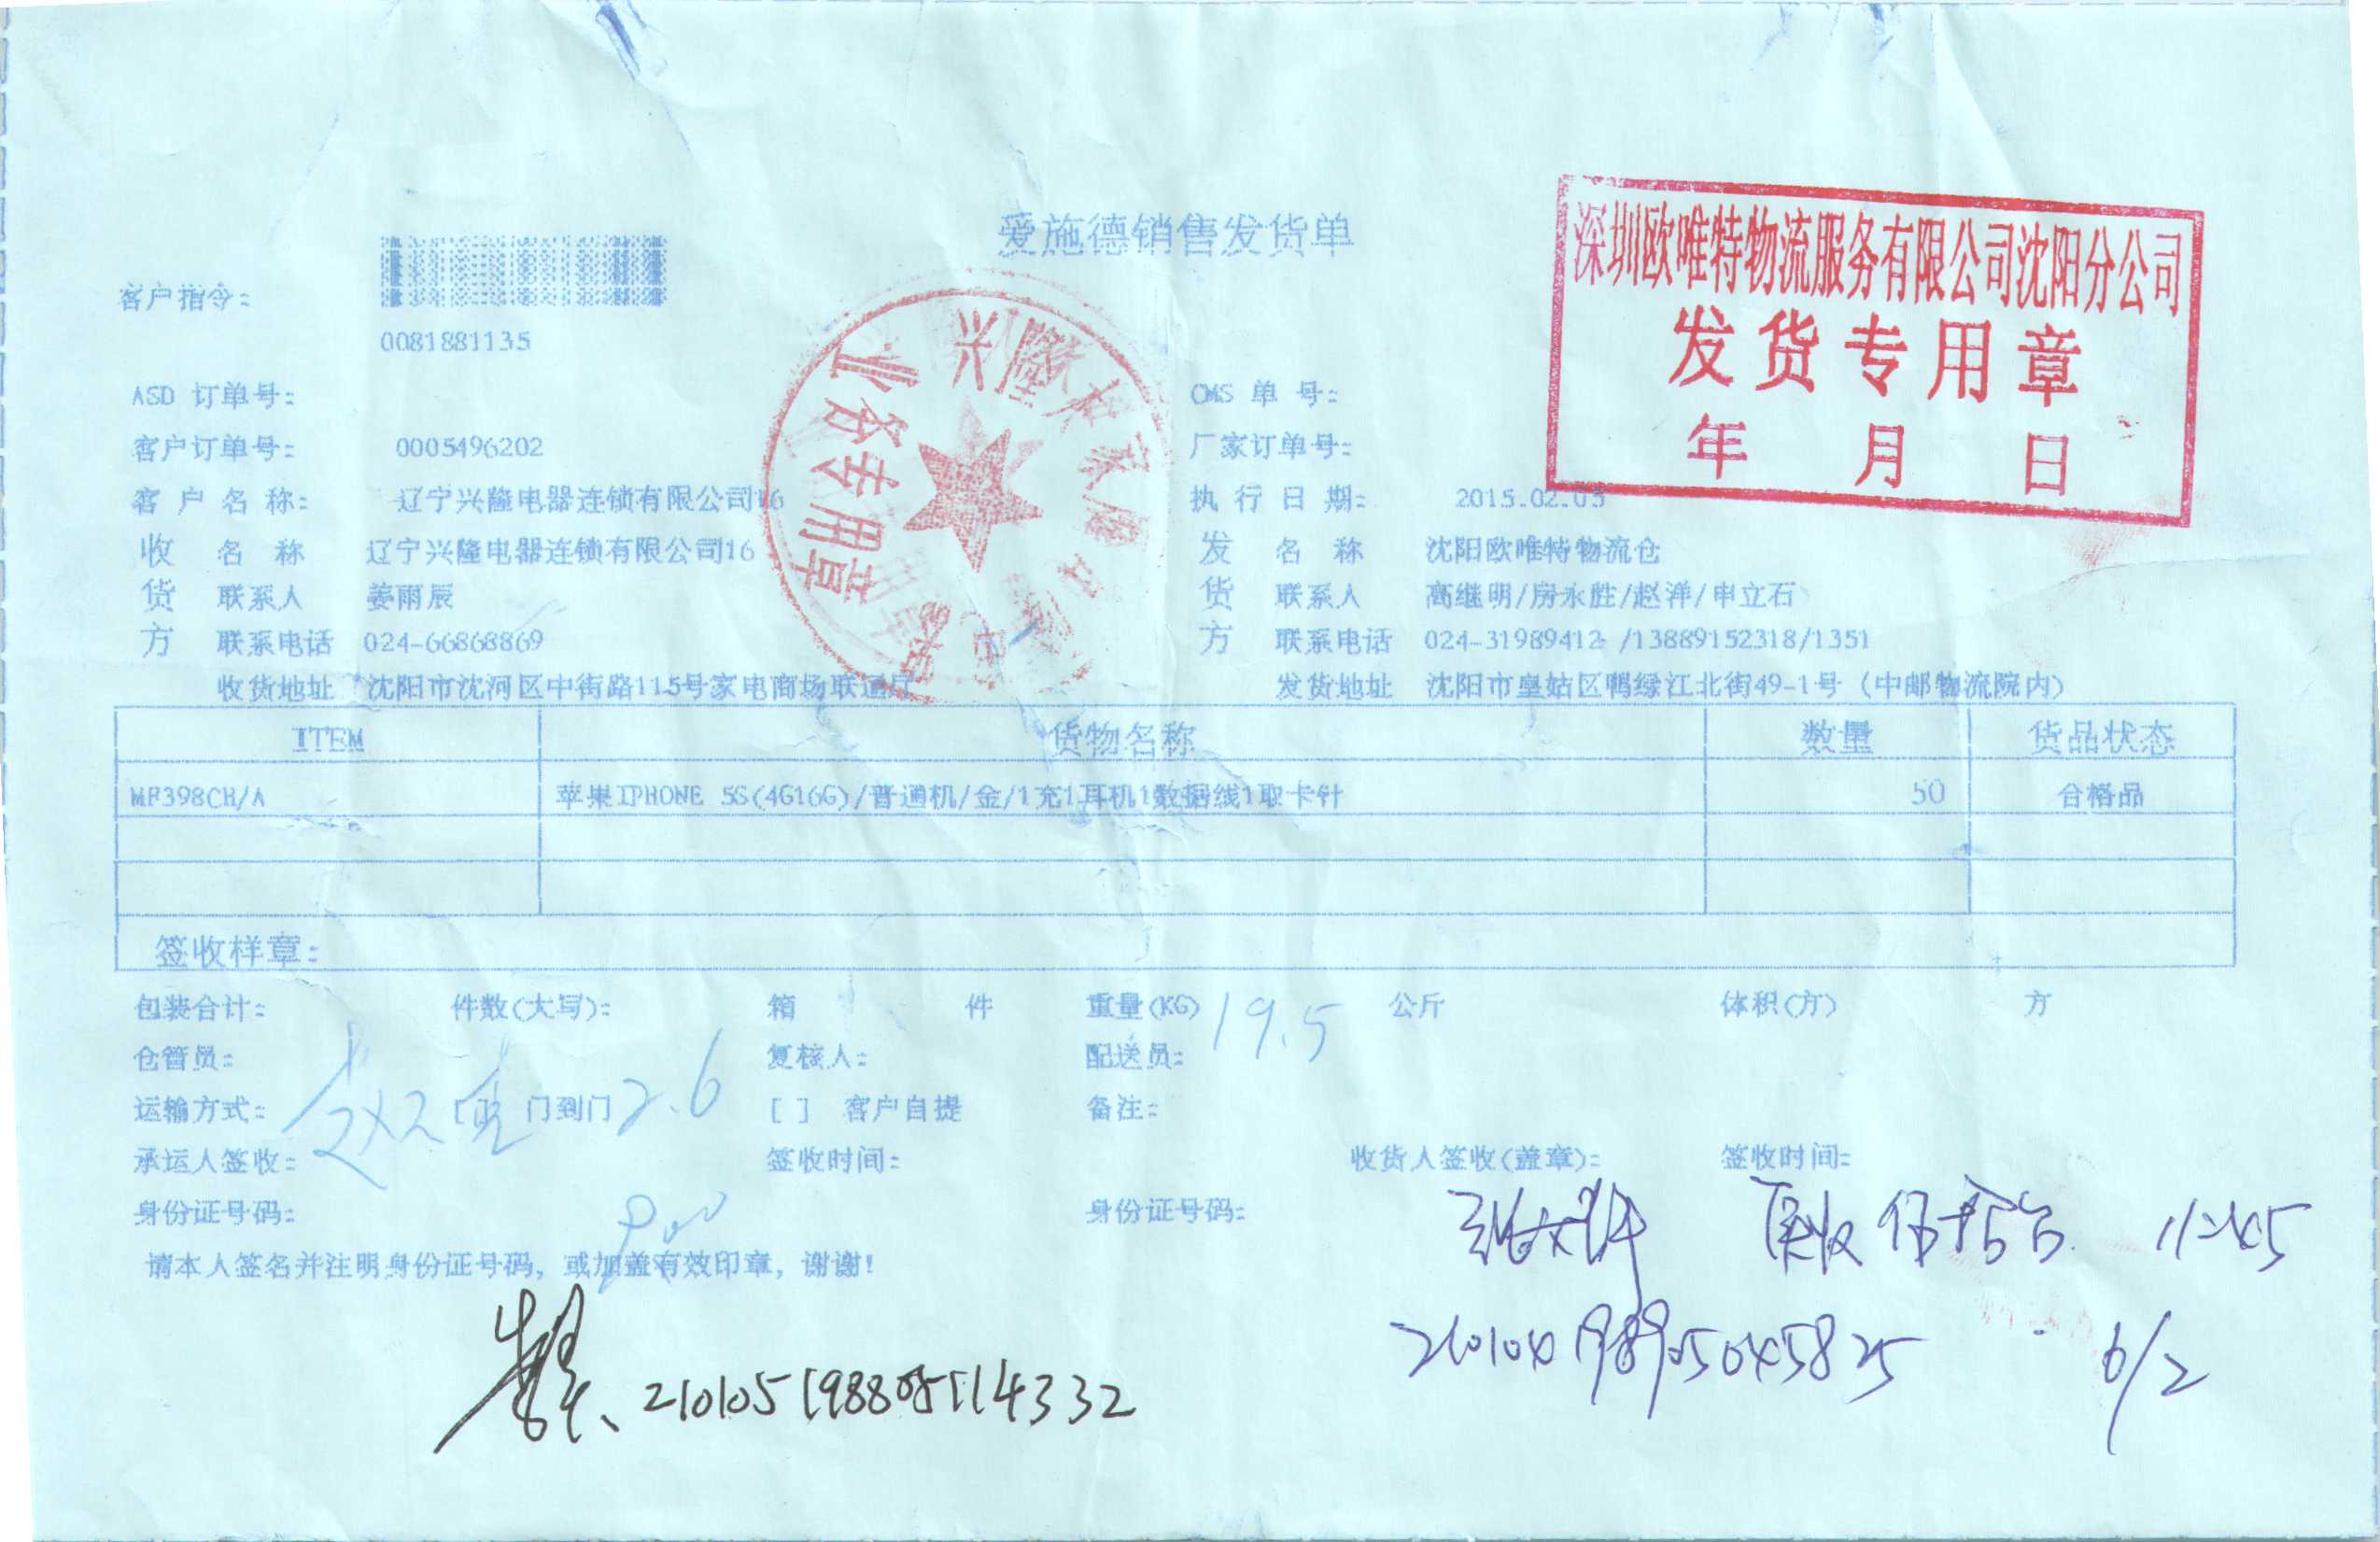 爱施德销售发货单
深圳欧唯特物流服务有限公司沈阳分公司
发货专用章
年 月 日
客户指令:
0081881135
业务专用章
ASD 订单号: CMS 单 号:
客户订单号: 0005496202 厂家订单号:
客 户 名 称: 辽宁兴隆电器连锁有限公司16 执 行 日 期: 2015.02.05
收 名 称 辽宁兴隆电器连锁有限公司16 发 名 称 沈阳欧唯特物流仓
货 联系人 姜雨辰 货 联系人 高继明/房永胜/赵洋/申立石
方 联系电话 024-66868869 方 联系电话 024-31989412 /13889152318/1351
收货地址 沈阳市沈河区中街路115号家电商场联通厅 发货地址 沈阳市皇姑区鸭绿江北街49-1号 (中邮物流院内)
ITEM 货物名称 数量 货品状态
MF398CH/A 苹果IPHONE 5S(4G16G)/普通机/金/1充1耳机1数据线1取卡针 50 合格品
签收样章:
包装合计: 件数(大写): 箱 件 重量(KG) 19.5 公斤 体积(方) 方
仓管员: 复核人: 配送员:
运输方式: 门到门 2.6 [ ] 客户自提 备注:
承运人签收: 签收时间: 收货人签收(盖章): 签收时间:
身份证号码: 身份证号码:
请本人签名并注明身份证号码, 或加盖有效印章, 谢谢!
6/2